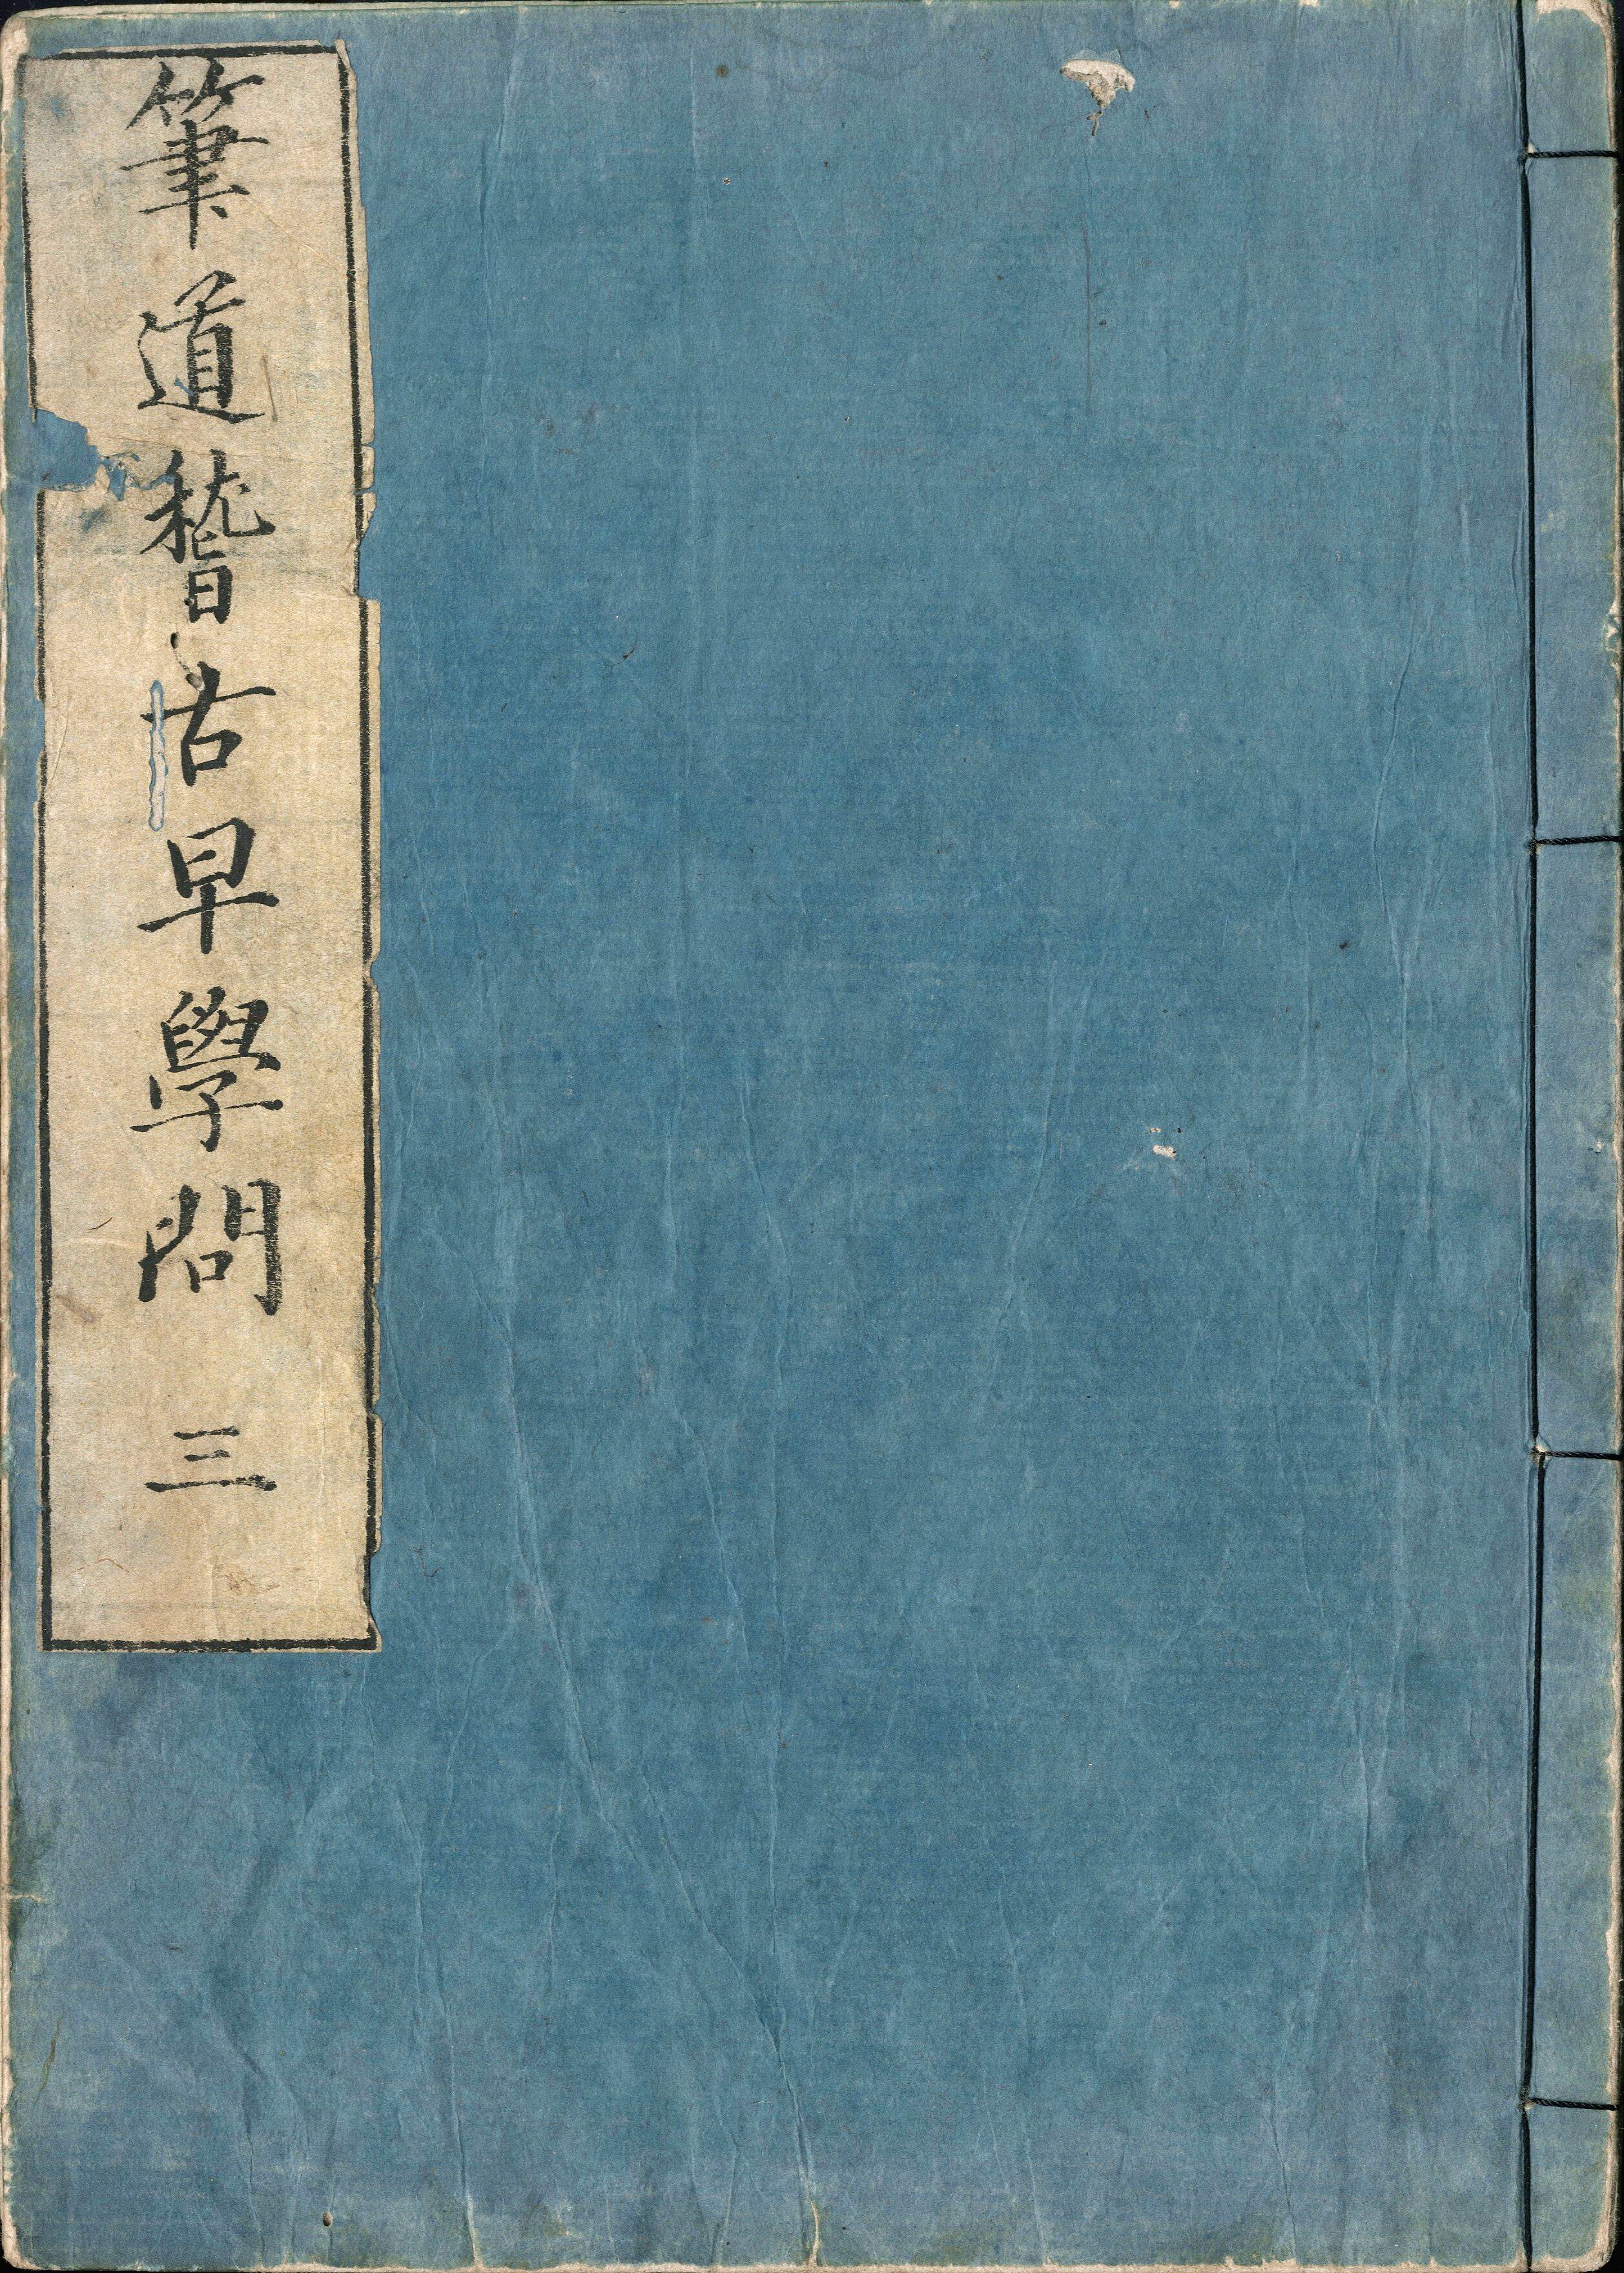 筆道稽古早學問 三